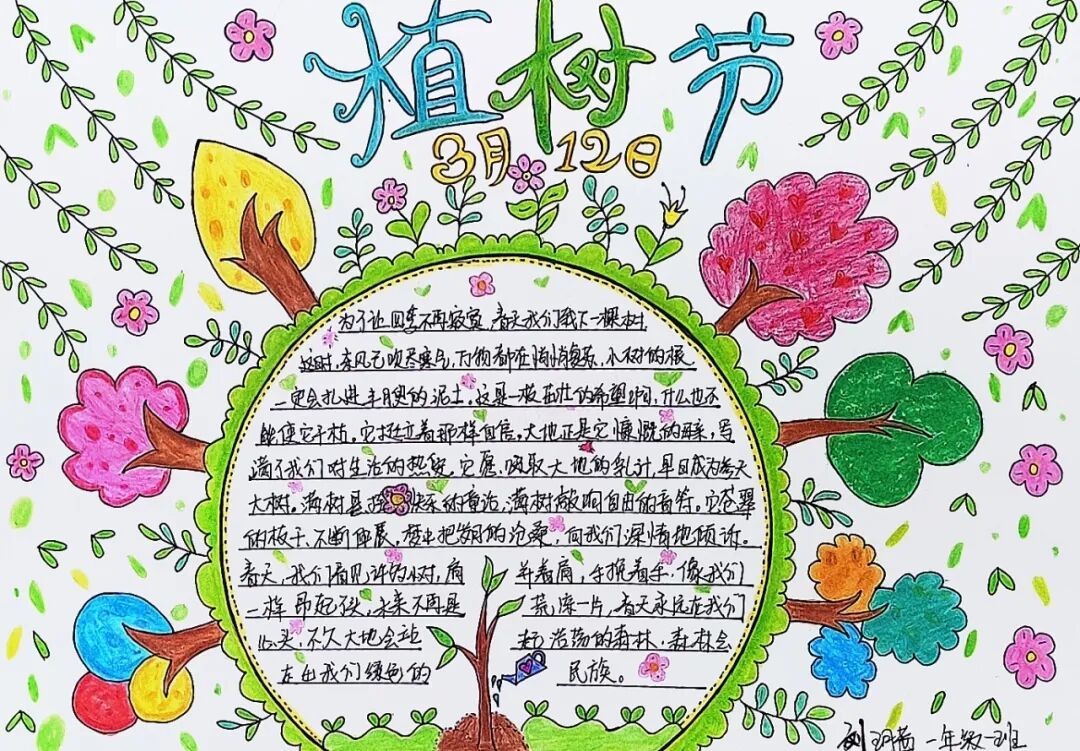 植树节
3月12日
为了让四季不再寂寞,春天我们栽下一棵树
这时,东风已吹尽寒乌,万物都在悄悄复苏,小树的根
一定会扎进丰腴的泥土,这是一枝茁壮的希望啊,什么也不
能使它干枯。它挺立着那样自信。大地正是它慷慨的母亲,写
满了我们对生活的热爱,它愿,吸取大地的乳汁,早日成为参天
大树。满树是 快乐的童话,满树敲响自由的音符。它苍翠
的枝干,不断伸展,梦中把岁月的沧桑,向我们深情地倾诉。
春天,我们看见许多小树,肩 并着肩,手挽着手,像我们
一样昂起头,未来不再是 荒凉一片,春天永远在我们
心头,不久大地会站 起浩荡的森林,森林会
走出我们绿色的 民族。
一年级一班